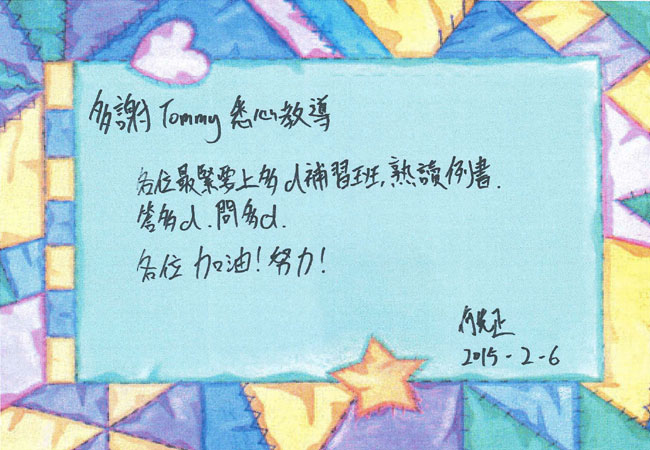 多謝 Tommy 悉心教導
各位最緊要上多d補習班,熟讀例書.
答多d.問多d.
各位 加油!努力!
2015-2-6